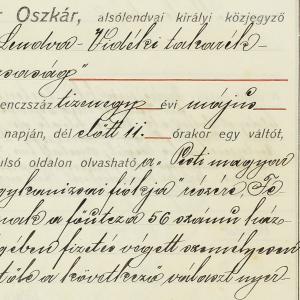 r Oszkár, alsólendvai királyi közjegyző
Lendva-Vidéki takarék-
assság"
encszáz tizenegy évi május
napján, dél előtt 11. órakor egy váltót,
ulsó oldalon olvasható a „Pesti magyar
gykanizsai fiókja" részére Fő
nak a főutcza 56 számú ház-
gében fizetés végett személyesen
tők a következő választ nyer